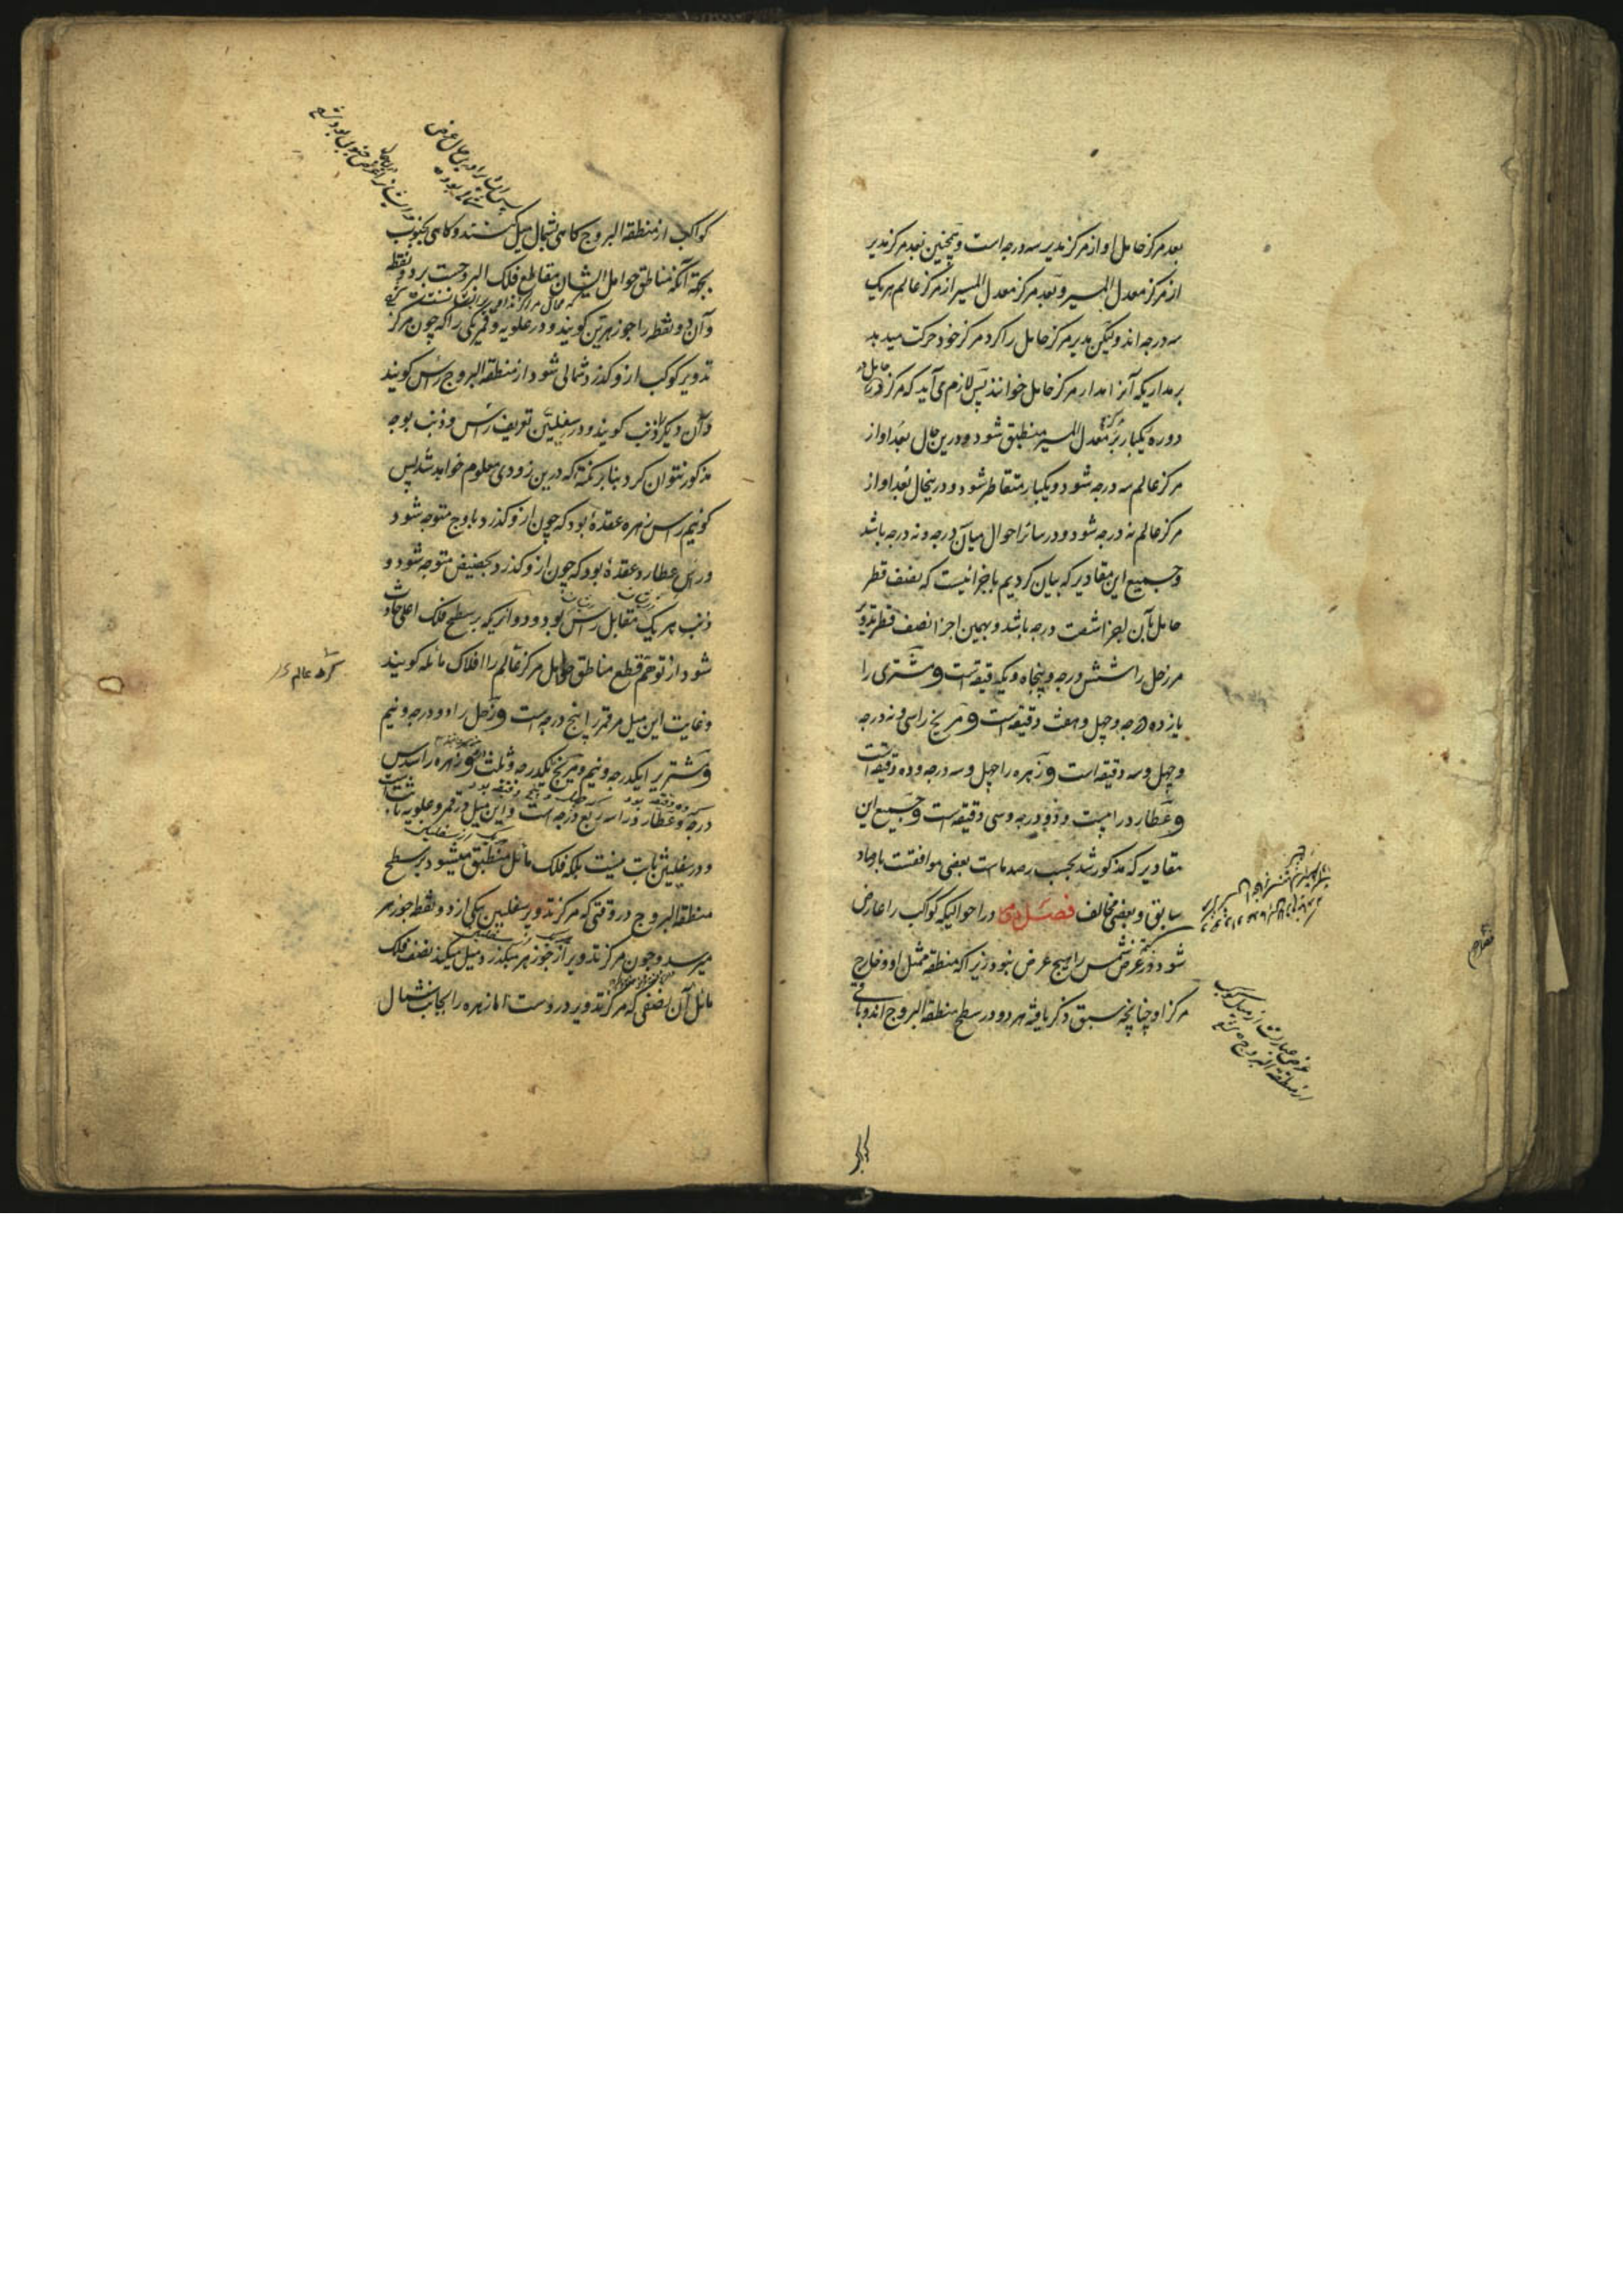 بعد مرکز حامل او از مرکز مدیر سه درجه است و همچنین بعد مرکز مدیر
از مرکز معدل المسیر و بعد مرکز معدل المسیر از مرکز عالم هر یک
سه درجه اند و لیکن مدیر مرکز حامل را کرد مرکز خود حرکت میدهد
بر مداریکه آنرا مدار مرکز حامل خوانند پس لازم می آید که مرکز حامل در
دوره یکبار بر مرکز معدل المسیر منطبق شود و درین حال بعد او از
مرکز عالم سه درجه شود و یکبار متقاطر شود و درینحال بعد او از
مرکز عالم نه درجه شود و در سائر احوال میان سه درجه و نه درجه باشد
و جمیع این مقادیر که بیان کردیم باجزائیست که نصف قطر
حامل بآن اجزا شصت درجه باشد و بهمین اجزا نصف قطر تدویر
مر زحل را شش درجه و پنجاه و یکدقیقه است و مشتری را
یازده درجه و چهل و هفت دقیقه است و مریخ را سی و نه درجه
و چهل و سه دقیقه است و زهره را چهل و سه درجه و ده دقیقه است
و عطارد را بیست و دو درجه و سی دقیقه است و جمیع این
مقادیر که مذکور شد بحسب رصدهاست بعضی موافقست با رصاد
سابق و بعضی مخالف فصل در احوالیکه کواکب را عارض
شود در عرض شمس را هیچ عرض نبود زیرا که منطقه ممثل او و خارج
مرکز او چنانچه سبق ذکر یافته هر دو در سطح منطقة البروج اند و باقی
عرض عبارت از میل کوکب
از منطقة البروج
کواکب از منطقة البروج کاهی بشمال میل کنند و کاهی بجنوب
بجهة آنکه مناطق حوامل ایشان مقاطع فلک البروجست بر دو نقطه
و آن دو نقطه را جوزهرین کویند و در علویه و قمر یکی را که چون مرکز
تدویر کوکب ازو کذرد شمالی شود از منطقة البروج رأس کویند
و آن دیکر را ذنب کویند و در سفلیین تعریف رأس و ذنب بوجه
مذکور نتوان کرد بنا بر نکتهٔ که درین زودی معلوم خواهد شد پس
کوئیم رأس زهره عقدهٔ بود که چون ازو کذرد باوج متوجه شود
و رأس عطارد عقدهٔ بود که چون ازو کذرد بحضیض متوجه شود و
ذنب هر یک مقابل رأس بود و دوائریکه بر سطح فلک اعلی حادث
شود از توهم قطع مناطق حوامل مرکز عالم را افلاک مائله کویند
و غایت این میل مر قمر را پنج درجه است و زحل را دو درجه و نیم
و مشتری را یکدرجه و نیم و مریخ یکدرجه و ثلث و زهره را سدس
درجه و عطارد را سه ربع درجه است و این میل در قمر و علویه ثابت است
و در سفلیین ثابت نیست بلکه فلک مائل منطبق میشود بر سطح
منطقة البروج در وقتی که مرکز تدویر سفلیین بیکی از دو نقطه جوزهر
میرسد و چون مرکز تدویر از جوزهر میکذرد میل میکند نصف فلک
مائل آن نصفی که مرکز تدویر دروست اما زهره را بجانب شمال